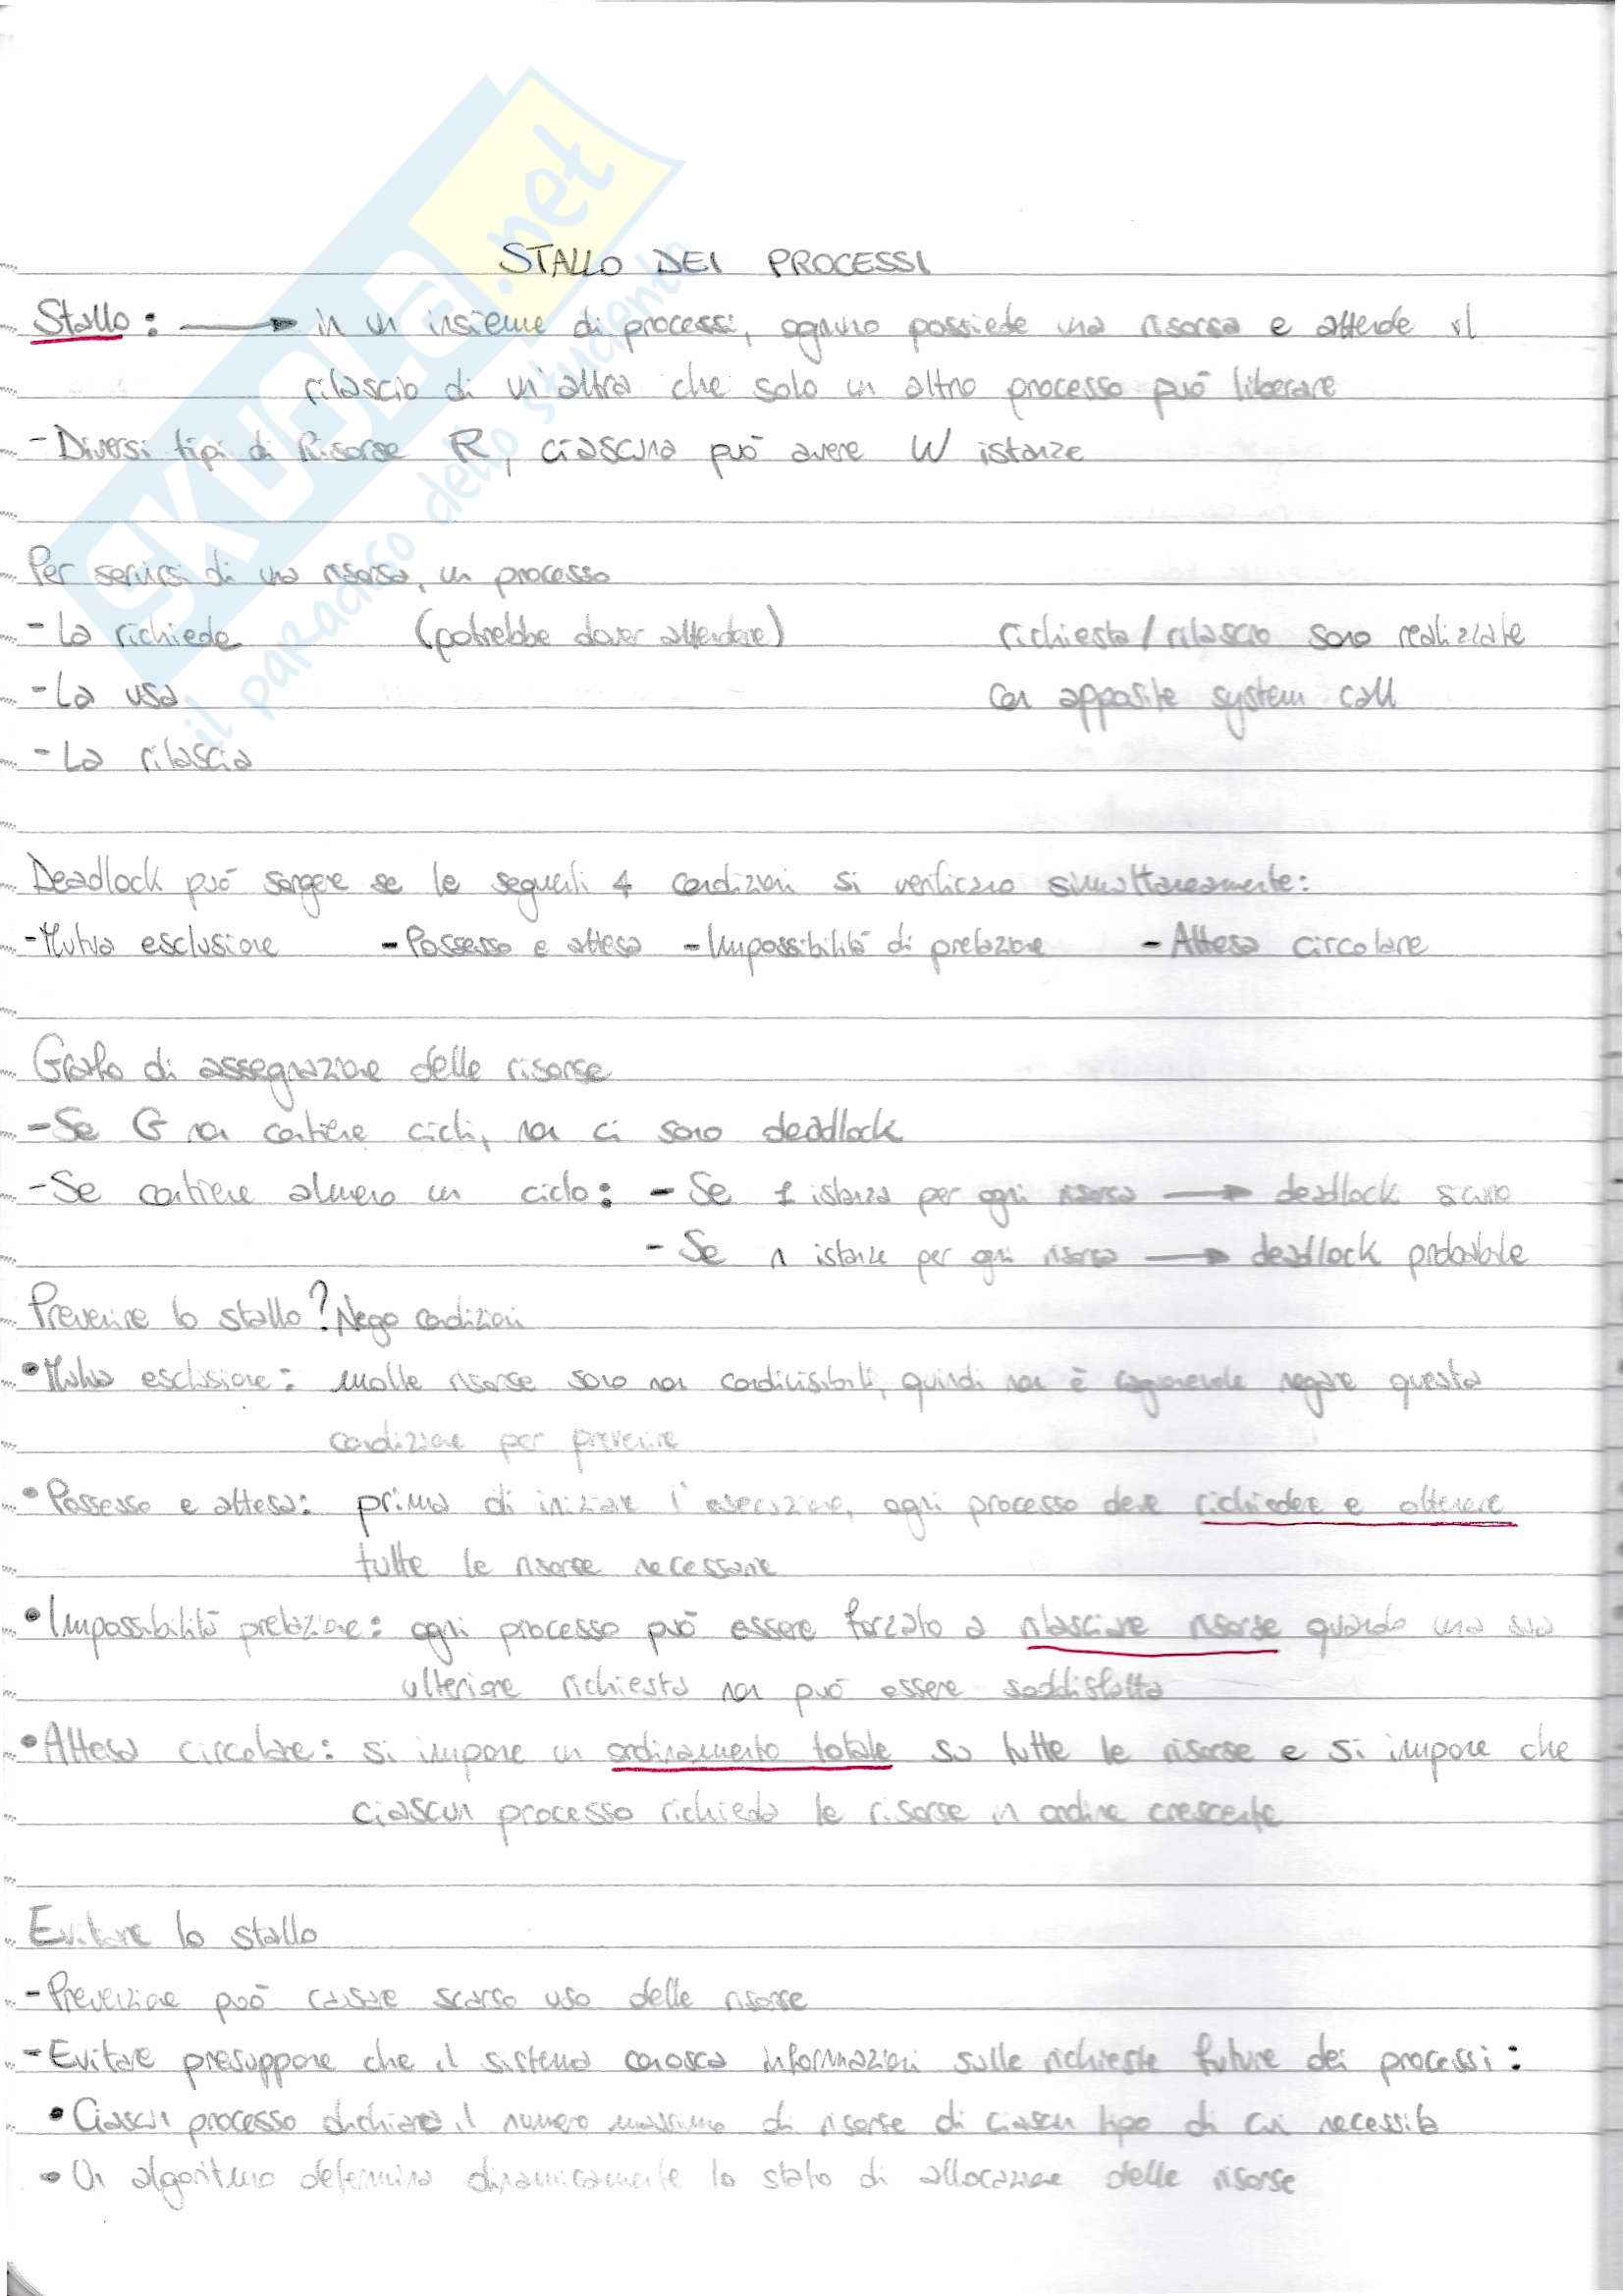 SKUOLA.net
il paradiso dello studente
STALLO DEI PROCESSI
Stallo: → in un insieme di processi, ognuno possiede una risorsa e attende il
rilascio di un'altra che solo un altro processo può liberare
- Diversi tipi di Risorse R, ciascuna può avere W istanze
Per servirsi di una risorsa, un processo
- La richiede (potrebbe dover attendere) richiesta/rilascio sono realizzate
- La usa con apposite system call
- La rilascia
Deadlock può sorgere se le seguenti 4 condizioni si verificano simultaneamente:
- Mutua esclusione - Possesso e attesa - Impossibilità di prelazione - Attesa circolare
Grafo di assegnazione delle risorse
- Se G non contiene cicli, non ci sono deadlock
- Se contiene almeno un ciclo: - Se 1 istanza per ogni risorsa → deadlock sicuro
- Se n istanze per ogni risorsa → deadlock probabile
Prevenire lo stallo? Nego condizioni
• Mutua esclusione: molte risorse sono non condivisibili, quindi non è ragionevole negare questa
condizione per prevenire
• Possesso e attesa: prima di iniziare l'esecuzione, ogni processo deve richiedere e ottenere
tutte le risorse necessarie
• Impossibilità prelazione: ogni processo può essere forzato a rilasciare risorse quando una sua
ulteriore richiesta non può essere soddisfatta
• Attesa circolare: si impone un ordinamento totale su tutte le risorse e si impone che
ciascun processo richieda le risorse in ordine crescente
Evitare lo stallo
- Prevenzione può causare scarso uso delle risorse
- Evitare presuppone che il sistema conosca informazioni sulle richieste future dei processi:
• Ciascun processo dichiara il numero massimo di risorse di ciascun tipo di cui necessita
• Un algoritmo determina dinamicamente lo stato di allocazione delle risorse